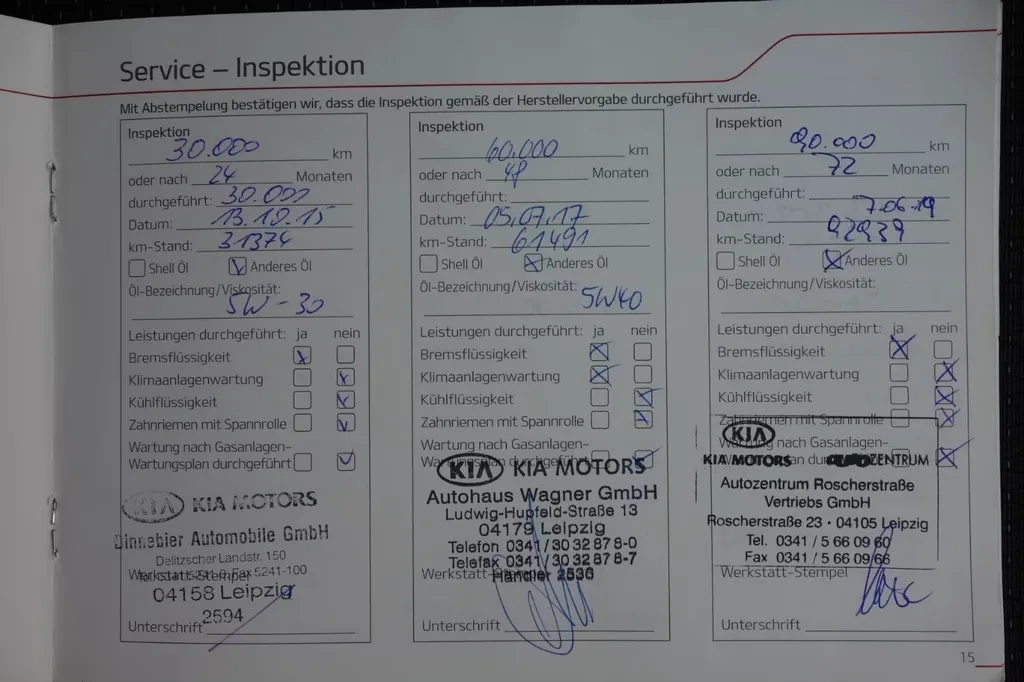 Service – Inspektion
Mit Abstempelung bestätigen wir, dass die Inspektion gemäß der Herstellervorgabe durchgeführt wurde.
Inspektion
30.000 km
oder nach 24 Monaten
durchgeführt: 30.000
Datum: 13.10.15
km-Stand: 31374
Shell Öl Anderes Öl
Öl-Bezeichnung/Viskosität:
5W-30
Leistungen durchgeführt: ja nein
Bremsflüssigkeit
Klimaanlagenwartung
Kühlflüssigkeit
Zahnriemen mit Spannrolle
Wartung nach Gasanlagen-
Wartungsplan durchgeführt
KIA KIA MOTORS
Dinnebier Automobile GmbH
Delitzscher Landstr. 150
Fax 5241-100
Werkstatt-Stempel
04158 Leipzig
2594
Unterschrift
Inspektion
60.000 km
oder nach 48 Monaten
durchgeführt:
Datum: 05.07.17
km-Stand: 61491
Shell Öl Anderes Öl
Öl-Bezeichnung/Viskosität:
5W40
Leistungen durchgeführt: ja nein
Bremsflüssigkeit
Klimaanlagenwartung
Kühlflüssigkeit
Zahnriemen mit Spannrolle
Wartung nach Gasanlagen-
Wartungsplan durchgeführt
KIA KIA MOTORS
Autohaus Wagner GmbH
Ludwig-Hupfeld-Straße 13
04179 Leipzig
Telefon 0341/30 32 87 8-0
Telefax 0341/30 32 87 8-7
Werkstatt-Stempel
Händler 2530
Unterschrift
Inspektion
90.000 km
oder nach 72 Monaten
durchgeführt:
Datum: 7.06.19
km-Stand: 92939
Shell Öl Anderes Öl
Öl-Bezeichnung/Viskosität:
Leistungen durchgeführt: ja nein
Bremsflüssigkeit
Klimaanlagenwartung
Kühlflüssigkeit
Zahnriemen mit Spannrolle
Wartung nach Gasanlagen-
KIA
KIA MOTORS AUTOZENTRUM
Autozentrum Roscherstraße
Vertriebs GmbH
Roscherstraße 23 · 04105 Leipzig
Tel. 0341 / 5 66 09 60
Fax 0341 / 5 66 09 66
Werkstatt-Stempel
Unterschrift
15